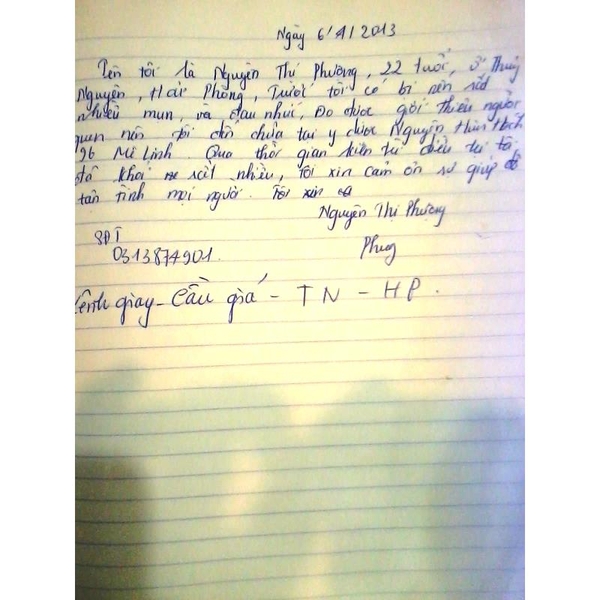 Ngày 6/4/2013
Tên tôi là Nguyễn Thị Phường, 22 tuổi, ở Thuỷ
Nguyên, Hải Phòng, Trước tôi có bị nên rất
nhiều mụn, và đau nhức, Do được giới thiệu người
quen nên tôi đến chữa tại y dược Nguyễn Hữu
96 Mê Linh. Qua thời gian điều trị tôi
đã khỏi rất nhiều, Tôi xin cảm ơn sự giúp đỡ
tận tình mọi người. Tôi xin
Nguyễn Thị Phượng
SĐT
0313874901.
Phượng
Kênh giang - TN - HP.